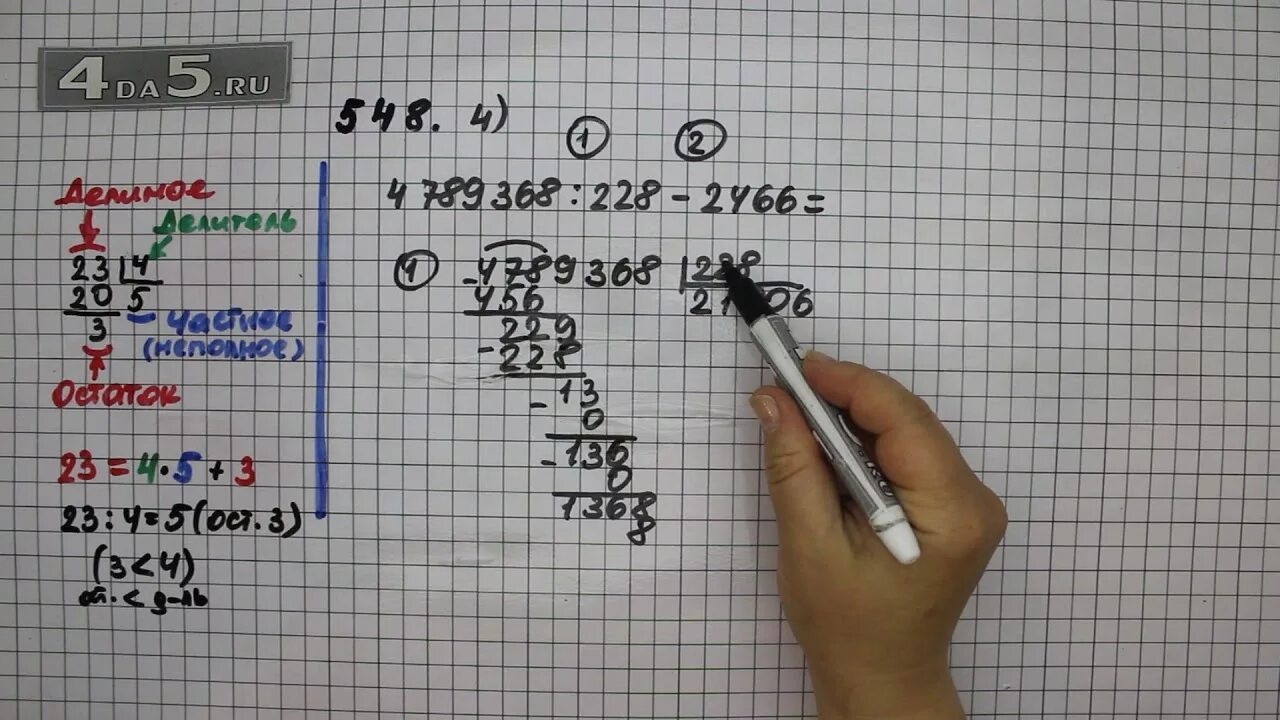 4DA5.RU
548. 4)
1 2
4 789 368 : 228 - 2466 =
Делимое
Делитель
23 4
20 5
3
Частное
(неполное)
Остаток
23 = 4 · 5 + 3
23 : 4 = 5 (ост. 3)
(3 < 4)
ост. < д-ль
1
- 4789368 228
456
229
- 228
- 13
0
- 136
0
1368
8